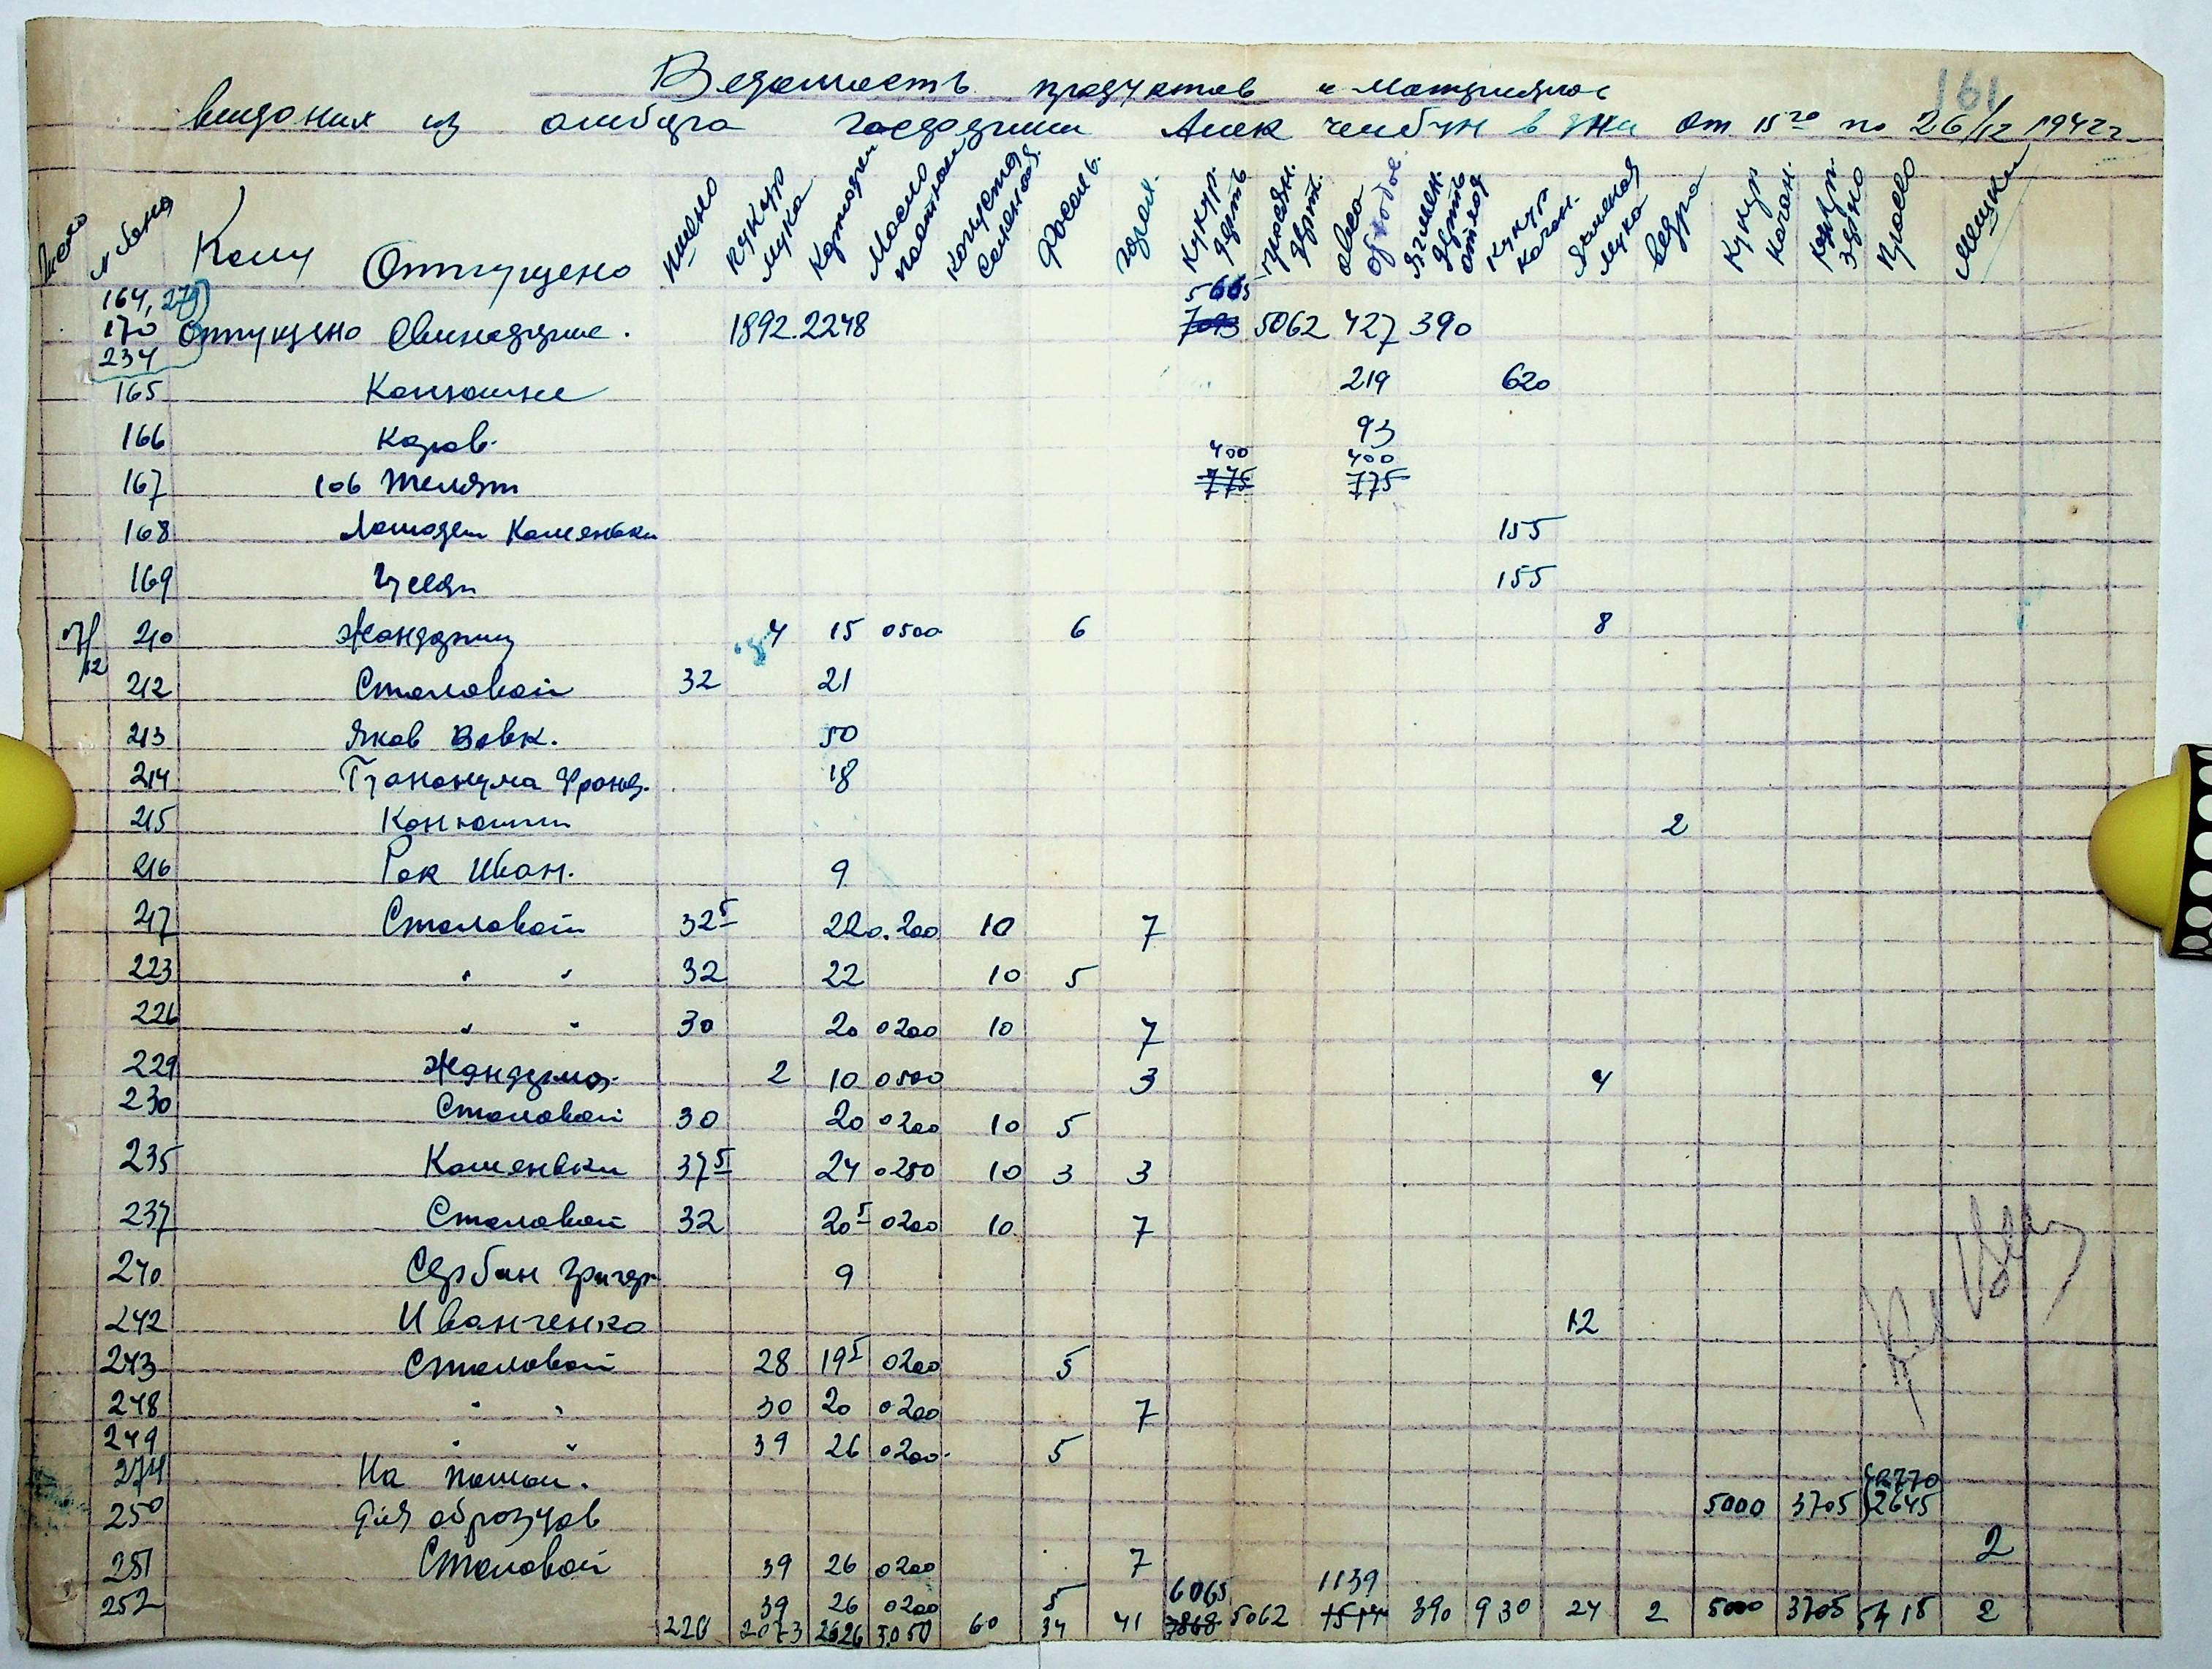 161
Ведомость продуктов и материялов
выдания из амбара Господарши Алек чембчи в яжи от 15го по 26/12 1942 г.
число № бона Кому Отпущено пшено кукур мука картошки Масло постное капуста соленая Фасоль горох. Кукур. дерть ячмен. дерт. овса Ячмен. дерть отход кукур качан. Ячменая мука ведра кукур качан. кукур. зерно Просо мешки
164, 279 5665
170 отпущено Свинадзрше. 1892. 2248 7093 5062 427 390
234
165 Канюшне 219 620
166 Каров. 93
400 400
167 106 Телят 775 775
168 Лошадям Каменьки 155
169 Гусям 155
17/12 210 Жандарму 4 15 0500 6 8
212 Столовой 32 21
213 Яков Вовк. 50
214 Франц. 18
215 Канюшни 2
216 Рак Иван. 9
217 Столовой 32 5 22 0.200 10 7
223 " " 32 22 10 5
226 " " 30 20 0200 10 7
229 Жандарма. 2 10 0500 3 4
230 Столовой 30 20 0200 10 5
235 Каменьки 37 5 24 0250 10 3 3
237 Столовой 32 20 5 0200 10 7
240 Сербин Григор 9
242 Иванченко 12
243 Столовой 28 19 5 0200 5
248 " " 30 20 0200 7
249 " " 39 26 0200 5
274 На помол. 2770
5000 3705 2645
250 Для образцов 2
251 Столовой 39 26 0200 7
252 39 26 0200 5 6065 1139
226 2073 2626 3.050 60 34 41 7868 5062 1514 390 930 24 2 5000 3705 5415 2